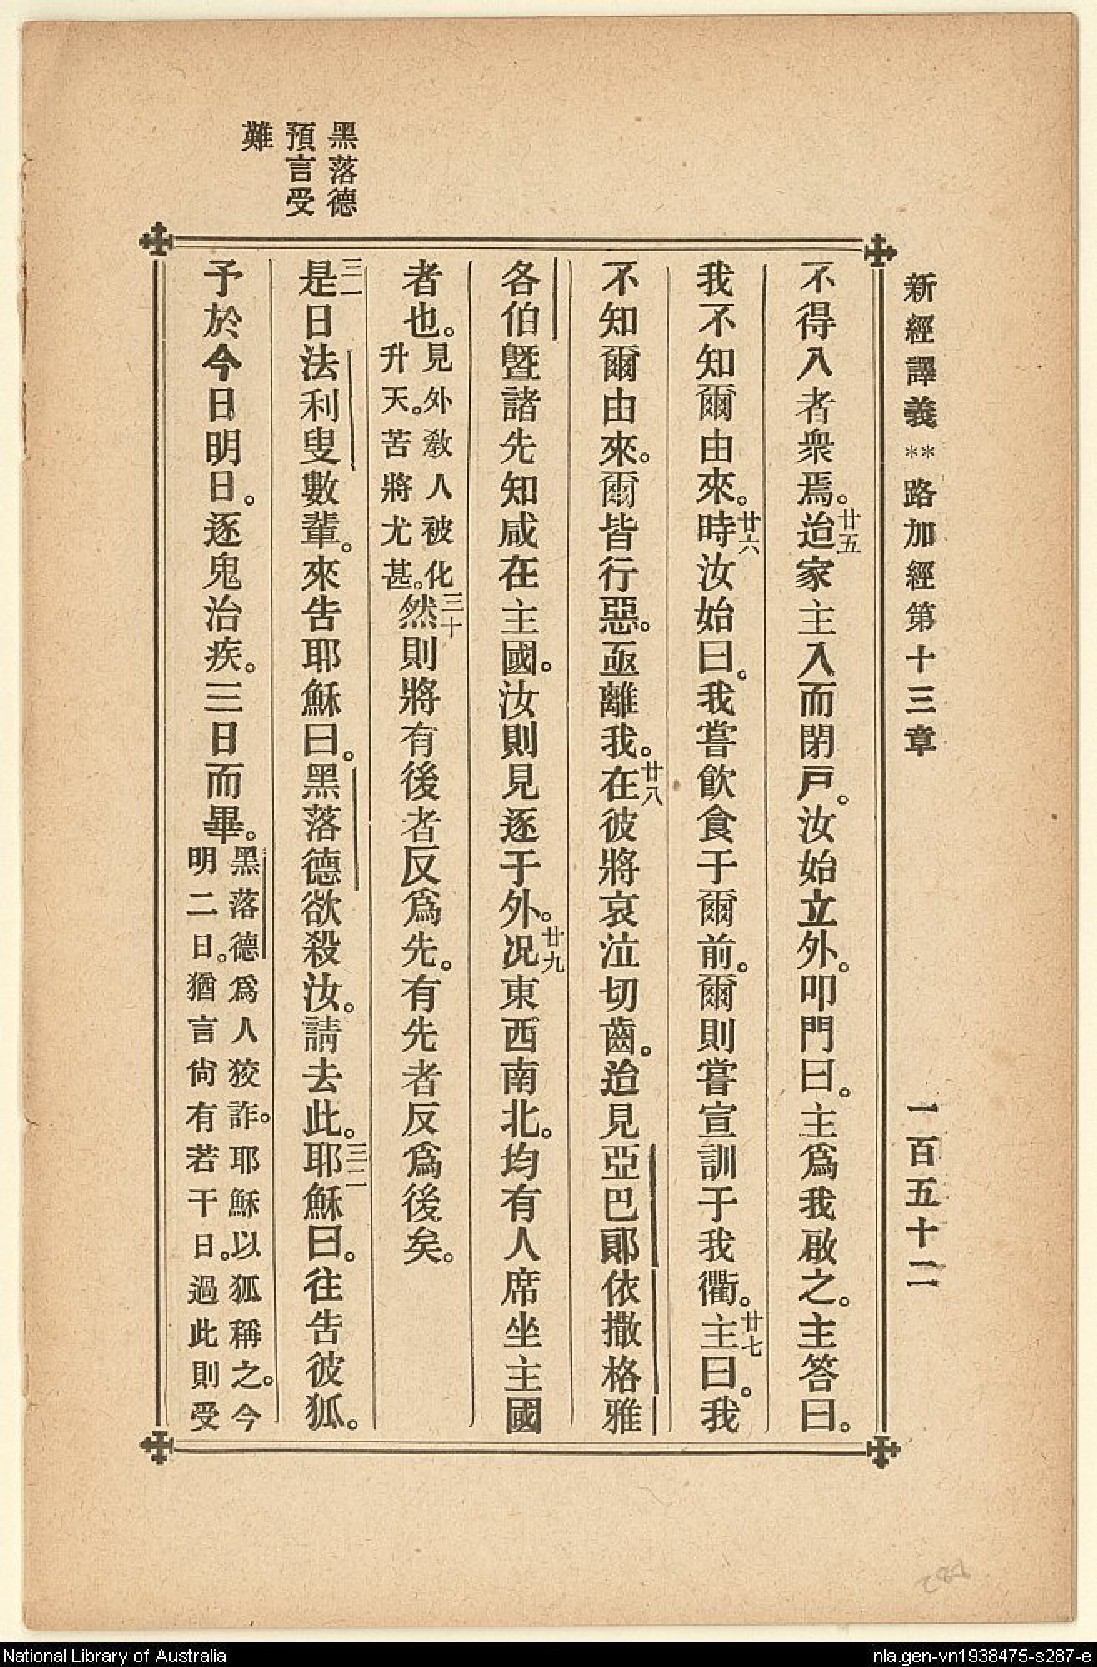 新經譯義**路加經第十三章 一百五十二
不得入者衆焉。廿五迨家主入而閉戸。汝始立外。叩門曰。主爲我啟之。主答曰。
我不知爾由來。廿六時汝始曰。我嘗飲食于爾前。爾則嘗宣訓于我衢。廿七主曰。我
不知爾由來。爾皆行惡。亟離我。廿八在彼將哀泣切齒。迨見亞巴郞依撒格雅
各伯曁諸先知咸在主國。汝則見逐于外。廿九況東西南北。均有人席坐主國
者也。見外敎人被化升天。苦將尤甚。三十然則將有後者反爲先。有先者反爲後矣。
三一是日法利叟數輩。來吿耶穌曰。黑落德欲殺汝。請去此。三二耶穌曰。往吿彼狐。
予於今日明日。逐鬼治疾。三日而畢。黑落德爲人狡詐。耶穌以狐稱之。今明二日。猶言尙有若干日。過此則受
黑落德
預言受
難
National Library of Australia
nla.gen-vn1938475-s287-e